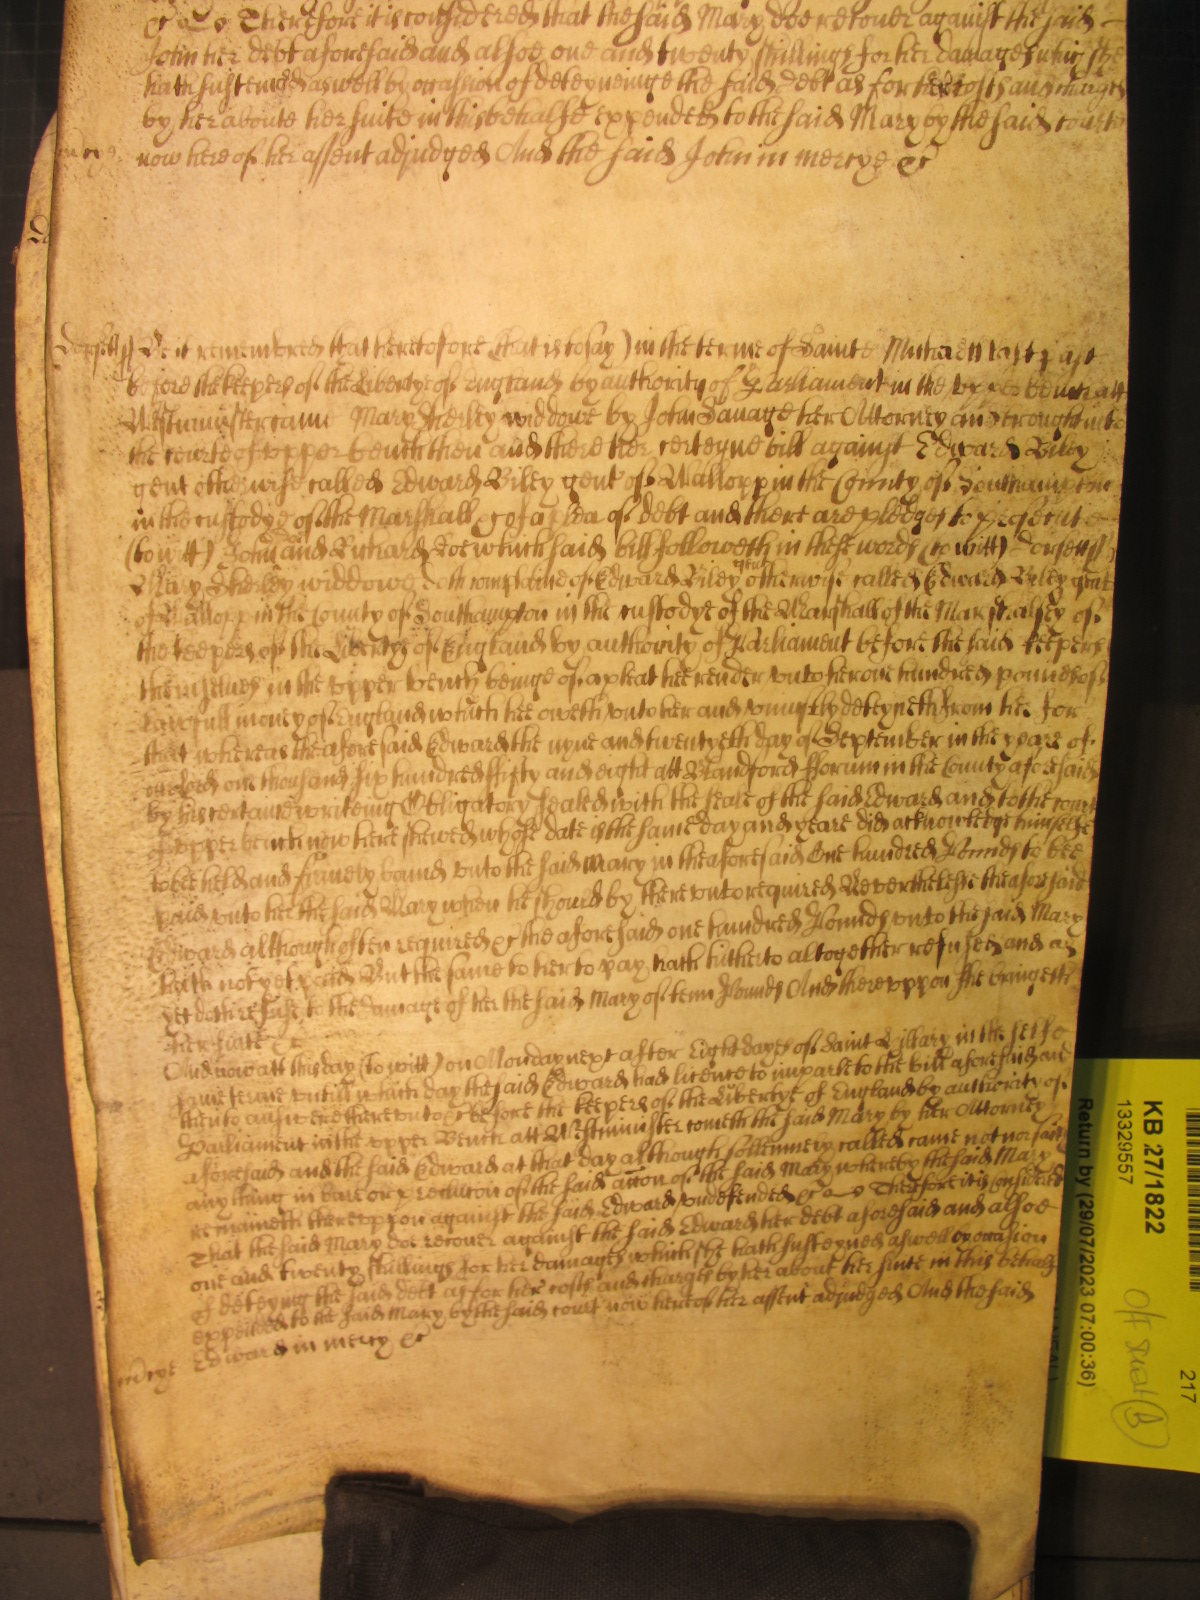 &c Therefore it is considered that the said Mary doe recouer against the said
John her debt aforesaid and alsoe one and twenty shillings for her damages which she
hath susteined aswell by occasion of deteyneinge the said debt as for her costs and charges
by her aboute her suite in this behalfe expended to the said Mary by the said courte
now here of her assent adjudged And the said John in mercye &c
Dorsett ss Be it remembred that heretofore (that is to say) in the terme of Sainte Michaell last past
before the keepers of the Liberty of England by authority of Parliament in the vpper bench att
Westminster came Mary Sherley widdowe by John Sauage her Attorney and brought into
the courte of vpper bench then and there her certeyne bill against Edward Biley
gent otherwise called Edward Biley gent of Wallopp in the County of Southampton
in the custodye of the Marshall &c of a plea of debt and there are pledges to prosecute
(to witt) John and Richard Roe which said bill followeth in these words (to witt) Dorsett ss
Mary Sherley widdowe doth complaine of Edward Biley gent otherwise called Edward Biley gent
of Wallopp in the County of Southampton in the custodye of the Marshall of the Marshalsey of
the keepers of the Libertye of England by authority of Parliament before the said keepers
themselues in the vpper bench beinge of a plea that hee render vnto her one hundred pounds of
lawfull money of England which hee oweth vnto her and vniustly deteyneth from her for
that whereas the aforesaid Edward the nyne and twentyeth day of September in the yeare of
our Lord one thousand six hundred fifty and eight att Blandford fforum in the County aforesaid
by his certaine writeing Obligatory sealed with the seale of the said Edward and to the court
of vpper bench now here shewed whose date is the same day and yeare did acknowledge himselfe
to bee held and firmely bound vnto the said Mary in the aforesaid One hundred Pounds to bee
paid vnto her the said Mary when he should by therevnto required Neverthelesse the aforesaid
Edward although often required &c the aforesaid one hundred Pounds vnto the said Mary
hath not yet paid But the same to her to pay hath hitherto altogether refused and as
yet doth refuse to the damage of her the said Mary of tenn Pounds And therevppon she bringeth
her suite &c
And now att this day (to witt) on Monday next after Eight dayes of Saint Hillary in the selfe
same terme vntill which day the said Edward had licence to imparle to the bill aforesaid and
then to answere therevnto &c before the keepers of the Libertye of England by authority of
Parliament in the vpper Bench att Westminster cometh the said Mary by her Attorney
aforesaid and the said Edward at that day although sollemnely called came not nor saith
any thing in barr or preclucion of the said accon of the said Mary whereby the said Mary
remaineth therevppon against the said Edward vndefended &c Therefore it is considered
That the said Mary doe recouer against the said Edward her debt aforesaid and alsoe
one and twenty shillings for her damages which she hath susteyned aswell by occasion
of deteyng the said debt as for her costs and charges by her about her suite in this behalf
expended to the said Mary by the said court now here of her assent adjudged And the said
mercye Edward in mercy &c
KB 27/1822
13329557
Return by (29/07/2023 07:00:36)
217